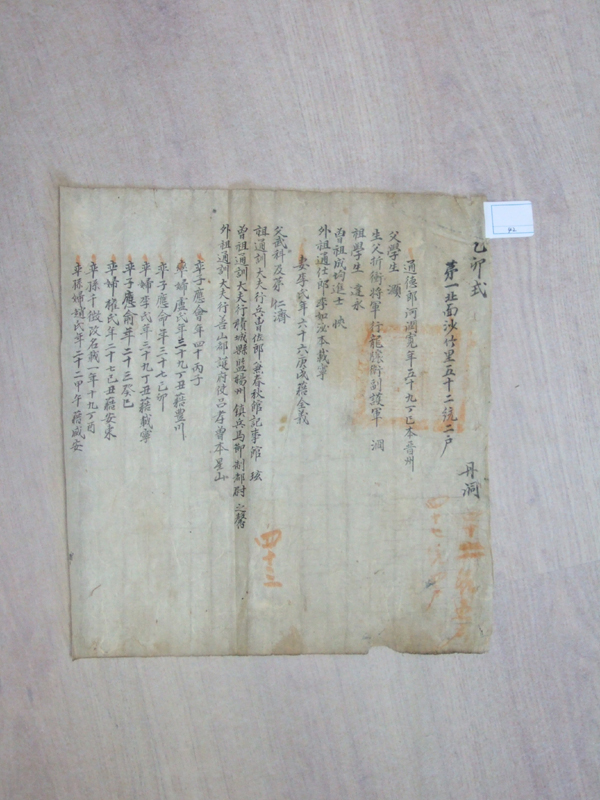 乙卯式
第一北面沙付里五十二統二戶
丹洞
通德郎河潤寬年五十九丁巳本晉州
父學生 灝
生父折衝將軍行龍驤衛副護軍 澗
祖學生 達永
曾祖成均進士
外祖通仕郎李如泌本載寧
妻李氏年六十六庚戌籍全義
父武科及第 仁濟
祖通訓大夫行兵曹佐郎兼春秋館記事官
曾祖通訓大夫行積城縣監楊州鎮兵馬節制都尉 之馨
外祖通訓大夫行善山都護府使呂孝曾本星山
率子應會年四十丙子
率婦盧氏年三十九丁丑籍豐川
率子應命年三十七己卯
率婦李氏年三十九丁丑籍載寧
率子應俞年二十三癸巳
率婦權氏年二十七己丑籍安東
率孫千徵改名 年十九丁酉
率孫婦趙氏年二十二甲午籍咸安
四十三
四十七
42